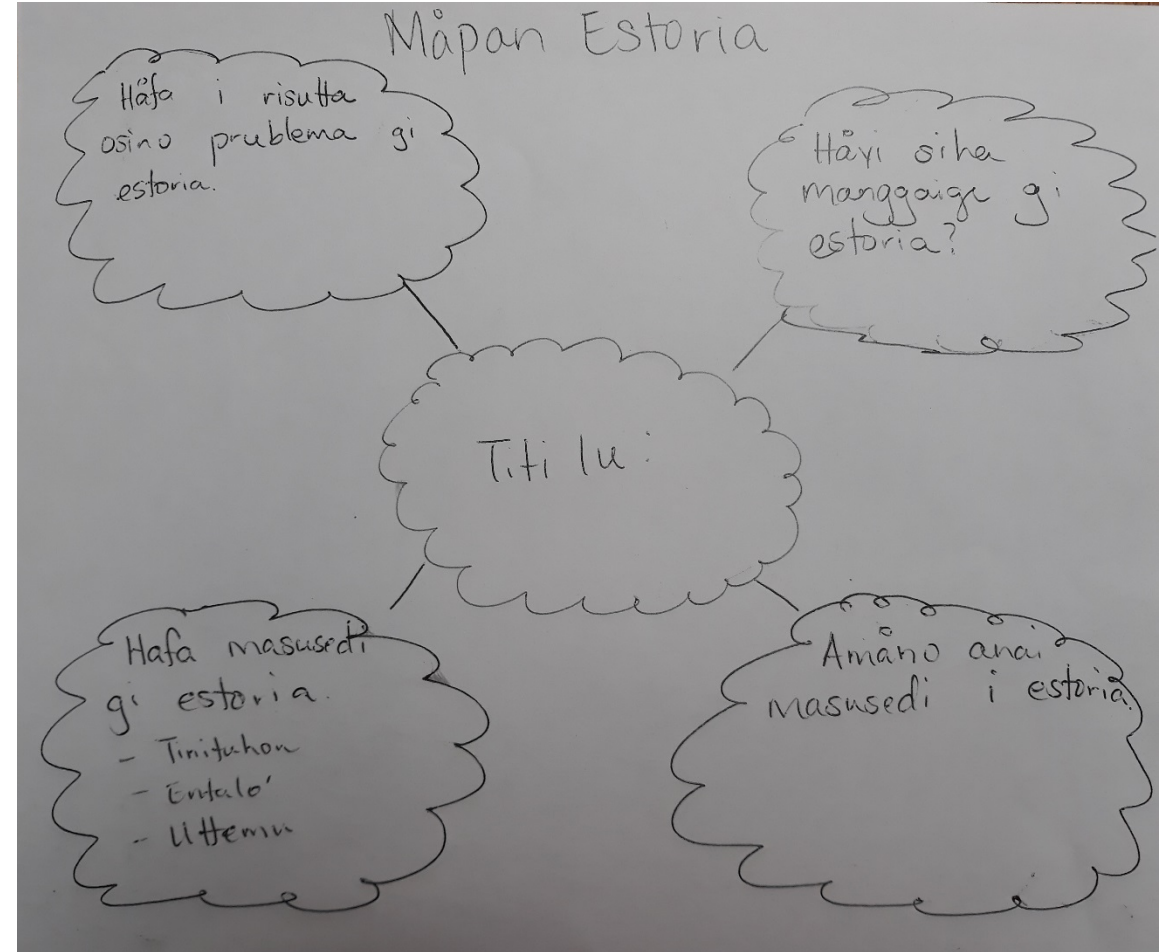 Måpan Estoria
Håfa i risutta
osino prublema gi
estoria.
Håyi siha
manggaige gi
estoria?
Titilu:
Hafa masusedi
gi estoria.
- Tinituhon
- Entalo'
- Uttemu
Amåno anai
masusedi i estoria.